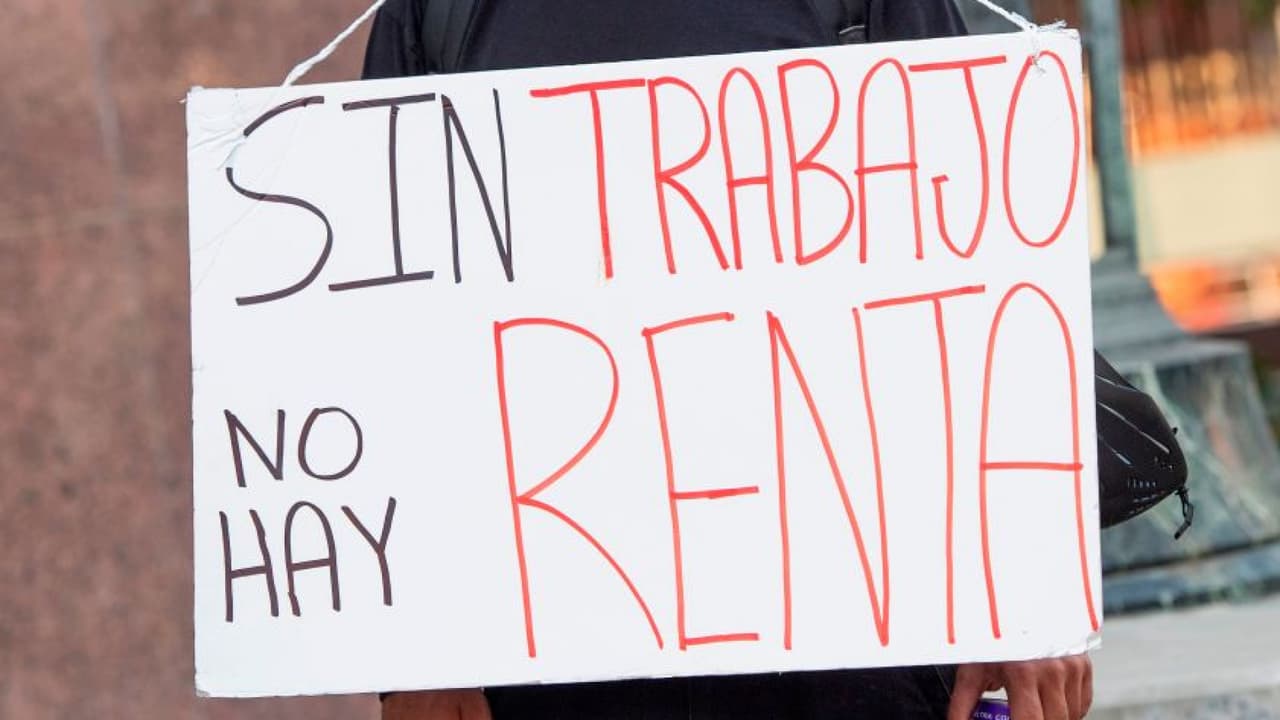 SIN TRABAJO
NO
HAY
RENTA